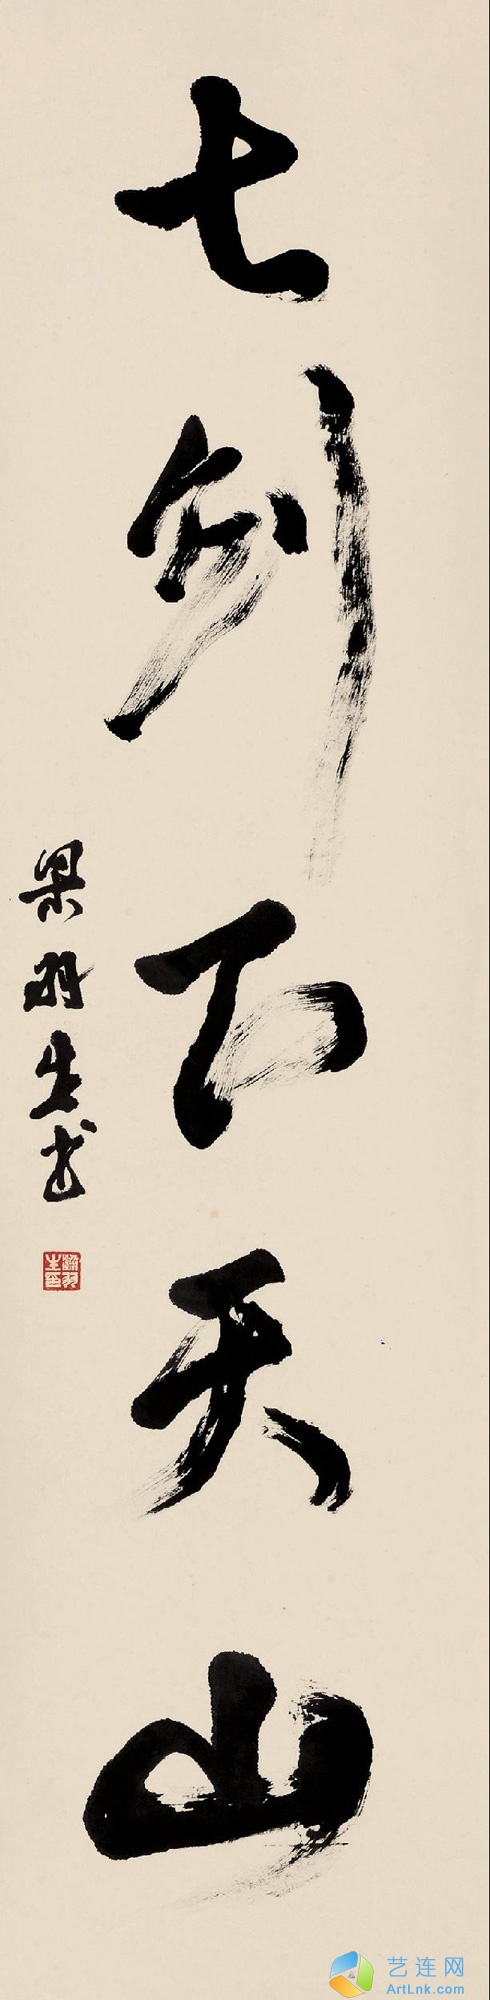 七剑下天山
梁羽生书
梁羽生印
艺连网
ArtLnk.com